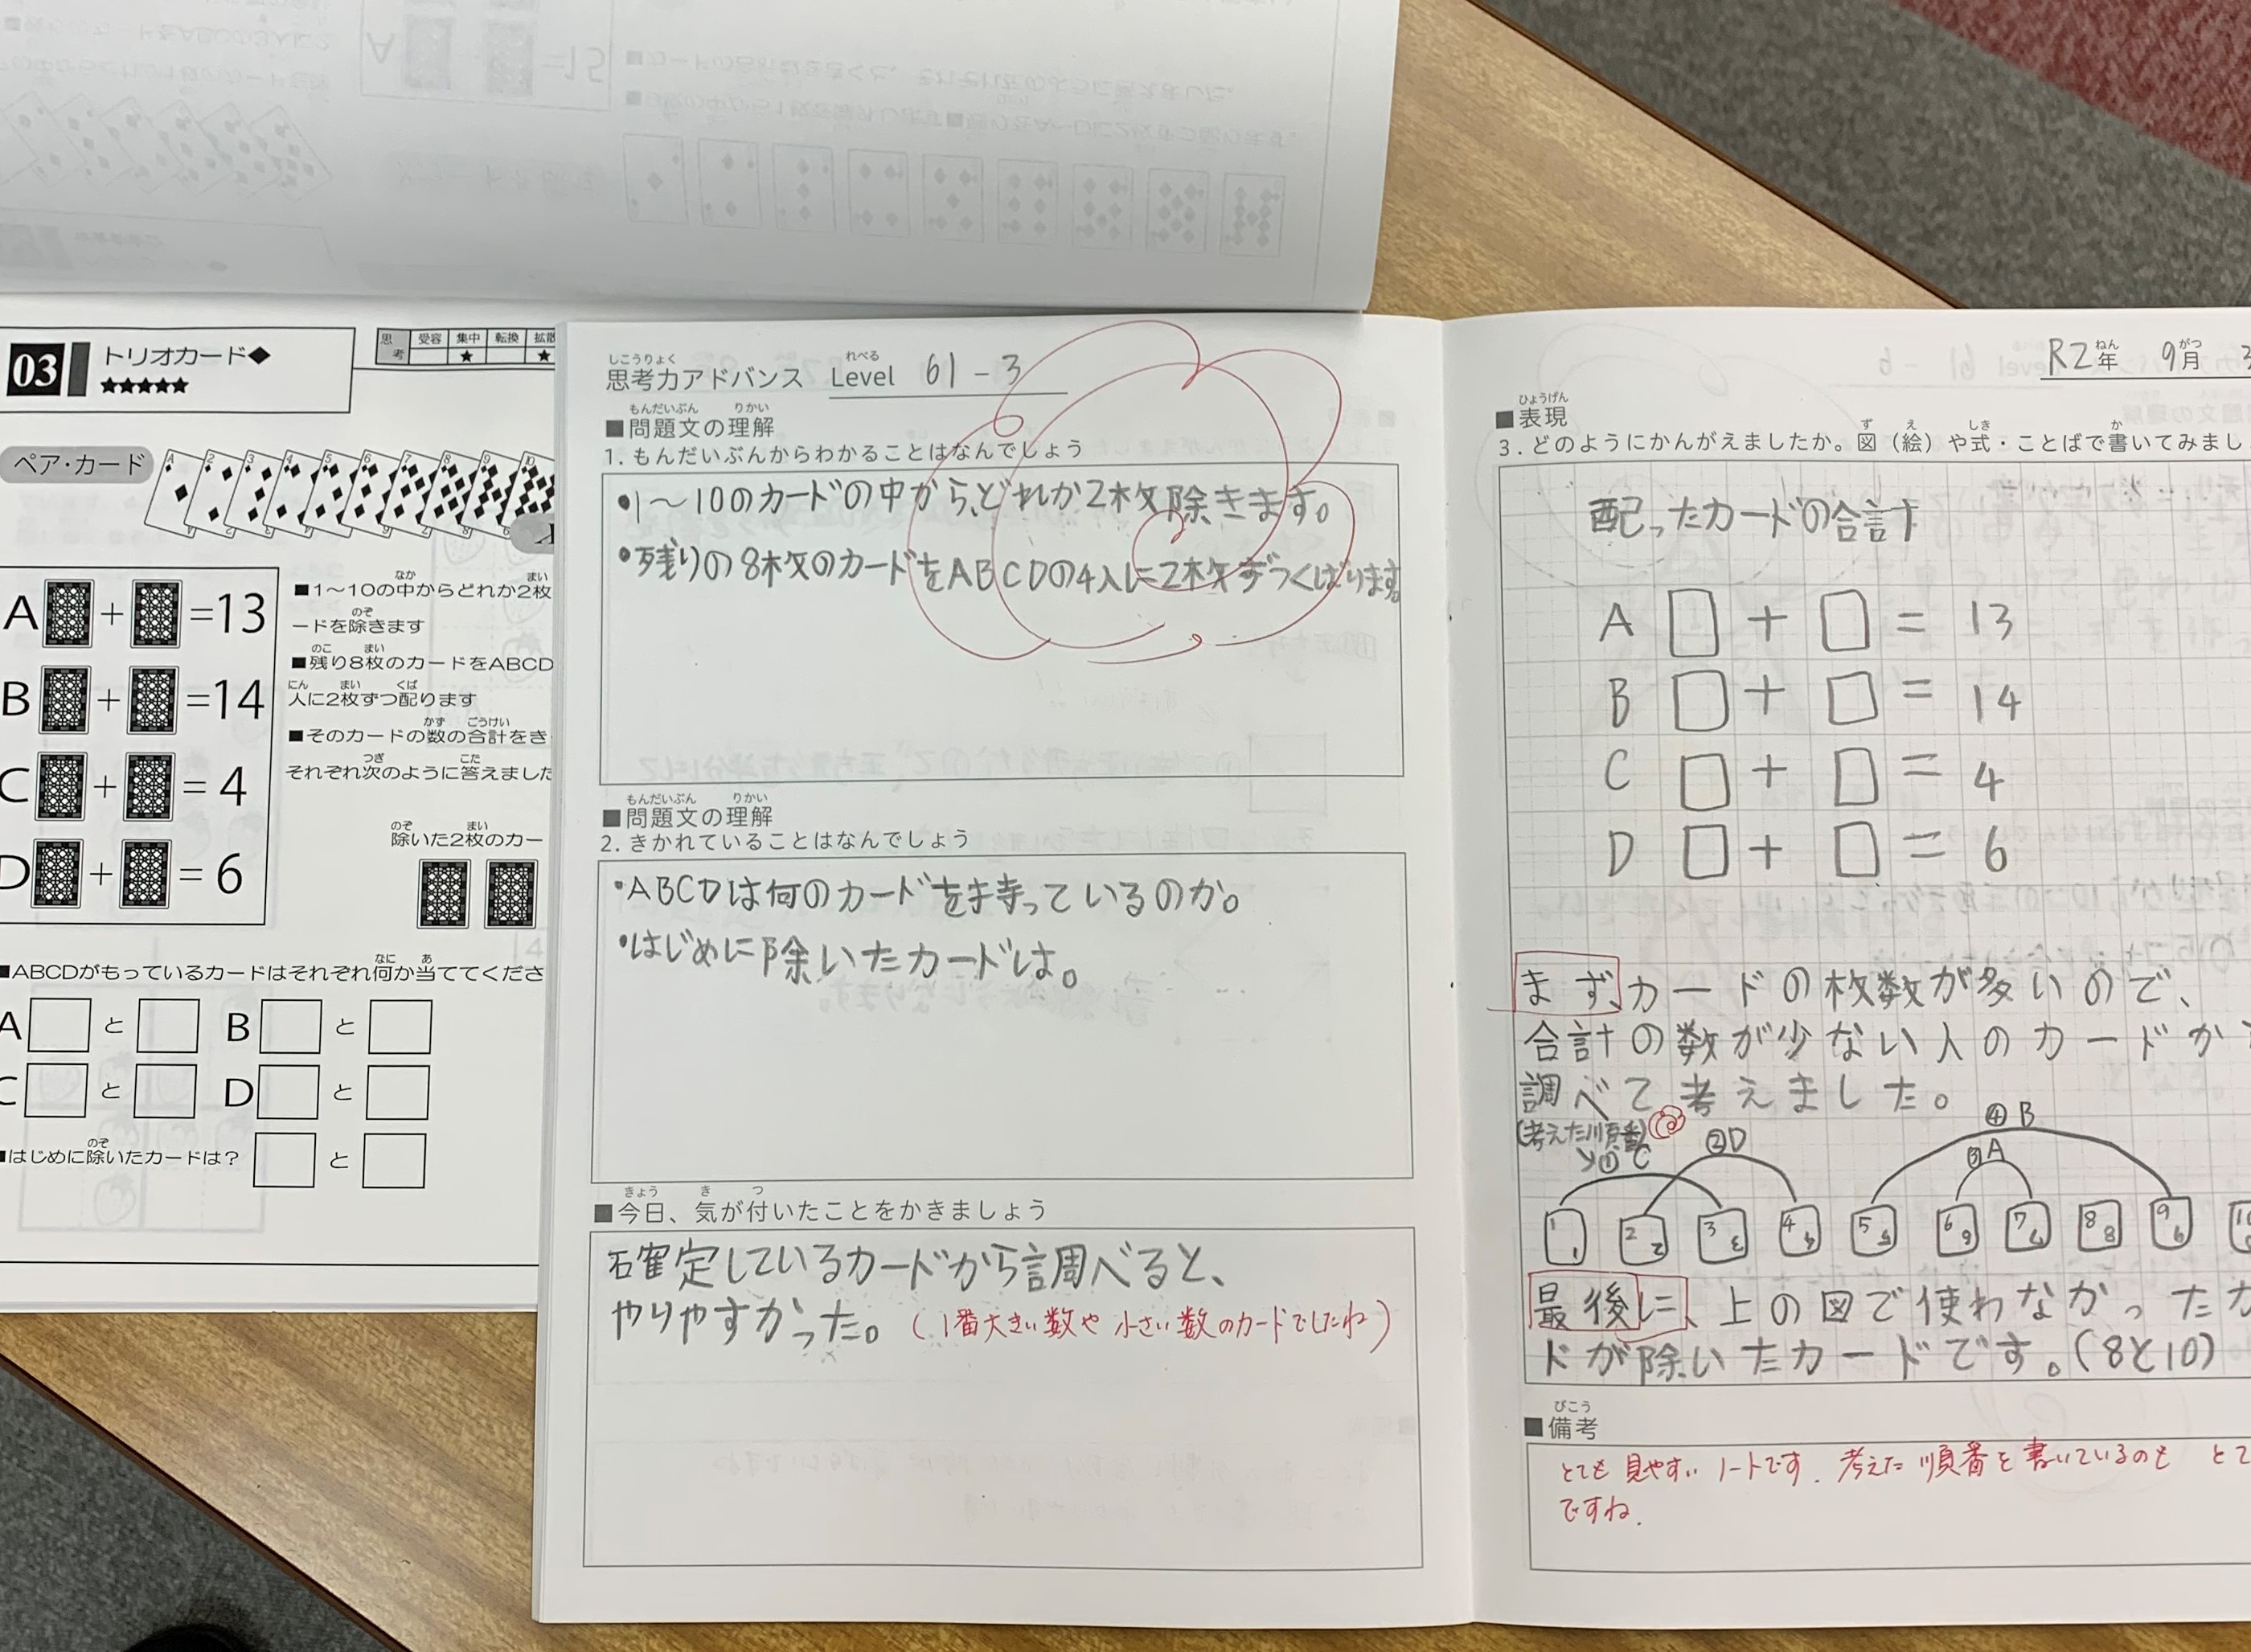 03
トリオカード◆
★★★★★
思考
受容 集中 転換 拡散
★ ★
ペア・カード
A + =13
B + =14
C + = 4
D + = 6
■1～10の中からどれか2枚
ードを除きます
■残り8枚のカードをABCD
人に2枚ずつ配ります
■そのカードの数の合計をき
それぞれ次のように答えました
除いた2枚のカー
■ABCDがもっているカードはそれぞれ何か当ててくださ
A と B と
C と D と
■はじめに除いたカードは? と
思考力アドバンス Level 61-3
■問題文の理解
1. もんだいぶんからわかることはなんでしょう
•1～10のカードの中から、どれか2枚除きます。
•残りの8枚のカードをABCDの4人に2枚ずつくばります。
■問題文の理解
2. きかれていることはなんでしょう
•ABCDは何のカードを持っているのか。
•はじめに除いたカードは。
■今日、気が付いたことをかきましょう
確定しているカードから調べると、
やりやすかった。(1番大きい数や小さい数のカードでしたね)
R2年 9月 3
■表現
3. どのようにかんがえましたか。図(絵)や式・ことばで書いてみまし
配ったカードの合計
A □ + □ = 13
B □ + □ = 14
C □ + □ = 4
D □ + □ = 6
まず、カードの枚数が多いので、
合計の数が少ない人のカードか
調べて考えました。
(考えた順番)
①C ②D ③A ④B
1 2 3 4 5 6 7 8 9 10
最後に、上の図で使わなかったカ
ドが除いたカードです。(8と10)
■備考
とても見やすいノートです。考えた順番を書いているのも とて
ですね。